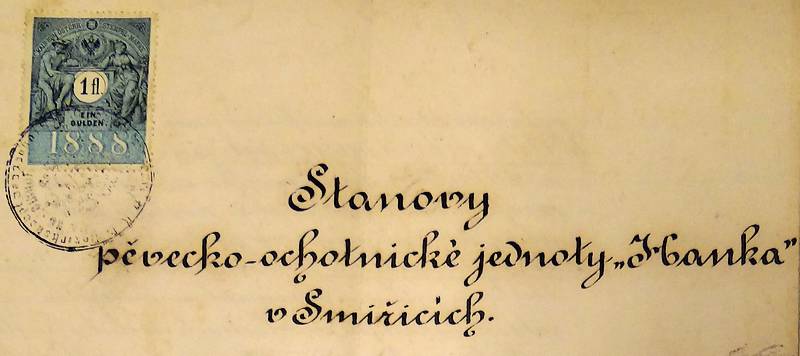 1 fl.
EIN
GULDEN.
1888
Stanovy
pěvecko-ochotnické jednoty „Hanka"
v Smiřicích.